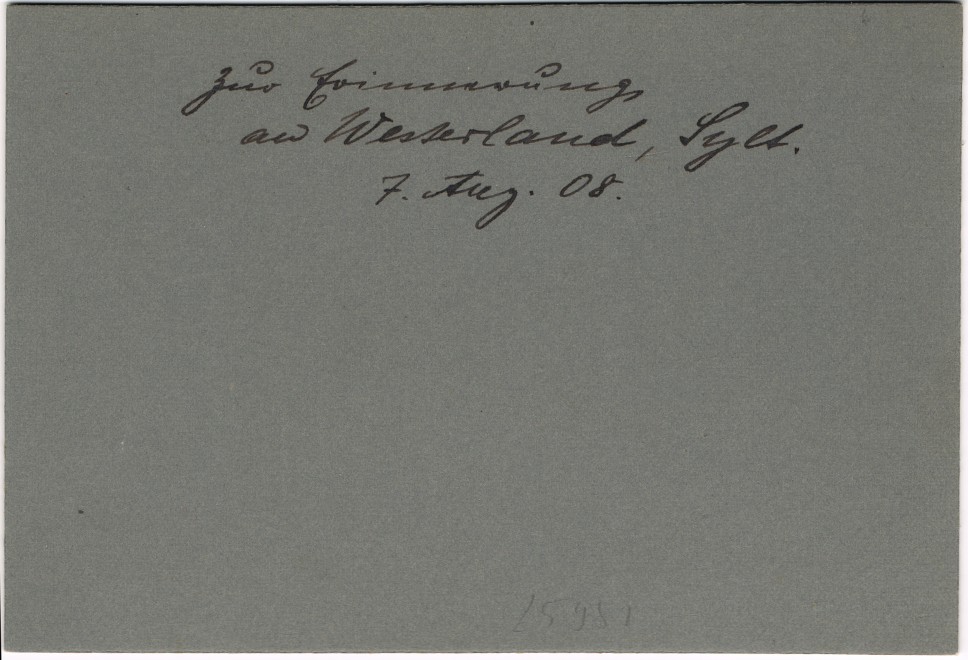 Zur Erinnerung
an Westerland, Sylt.
7. Aug. 08.